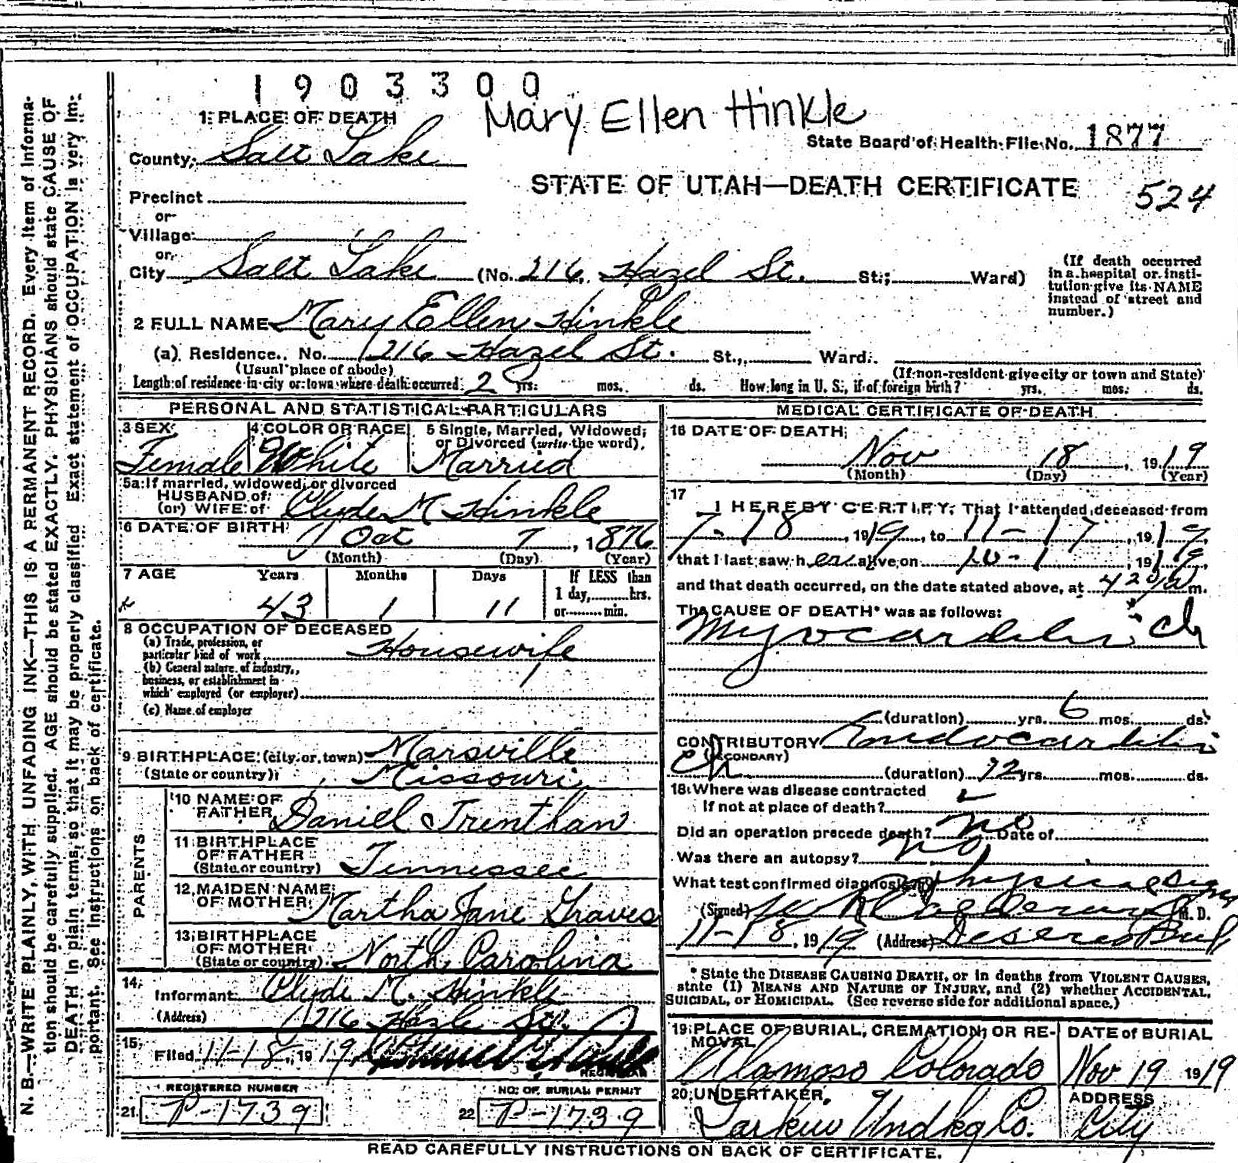 1903300
Mary Ellen Hinkle
1. PLACE OF DEATH
State Board of Health File No. 1877
County, Salt Lake
STATE OF UTAH—DEATH CERTIFICATE 524
Precinct
or
Village
or
City Salt Lake (No. 216, Hazel St. St.; Ward)
(If death occurred in a hospital or institution give its NAME instead of street and number.)
2 FULL NAME Mary Ellen Hinkle
(a) Residence. No. 1216 Hazel St. St., Ward.
(Usual place of abode) (If non-resident give city or town and State)
Length of residence in city or town where death occurred 2 yrs. mos. ds. How long in U. S., if of foreign birth? yrs. mos. ds.
PERSONAL AND STATISTICAL PARTICULARS
3 SEX 4 COLOR OR RACE 5 Single, Married, Widowed, or Divorced (write the word).
Female White Married
5a If married, widowed, or divorced
HUSBAND of
(or) WIFE of Clyde M. Hinkle
6 DATE OF BIRTH Oct 7, 1876
(Month) (Day) (Year)
7 AGE Years Months Days If LESS than
1 day, hrs.
or min.
43 1 11
8 OCCUPATION OF DECEASED
(a) Trade, profession, or
particular kind of work Housewife
(b) General nature of industry,
business, or establishment in
which employed (or employer)
(c) Name of employer
9 BIRTHPLACE (city or town) Marsville
(State or country) Missouri
PARENTS
10 NAME OF
FATHER Daniel Trentham
11 BIRTHPLACE
OF FATHER
(State or country) Tennessee
12 MAIDEN NAME
OF MOTHER Martha Jane Graves
13 BIRTHPLACE
OF MOTHER
(State or country) North Carolina
14.
Informant Clyde M. Hinkle
(Address) 1216 Hazle St.
15.
Filed 11-18, 1919
REGISTRAR
REGISTERED NUMBER NO. OF BURIAL PERMIT
21. P-1739 22 P-1739
MEDICAL CERTIFICATE OF DEATH
16 DATE OF DEATH
Nov 18, 1919
(Month) (Day) (Year)
17
I HEREBY CERTIFY, That I attended deceased from
7-18, 1919, to 11-17, 1919,
that I last saw her alive on 10-1, 1919
and that death occurred, on the date stated above, at 420 a m.
The CAUSE OF DEATH* was as follows:
Myocarditis Ch
(duration) yrs. 6 mos. ds.
CONTRIBUTORY Endocarditis
(SECONDARY) Ch
(duration) 22 yrs. mos. ds.
18 Where was disease contracted
If not at place of death?
Did an operation precede death? no Date of
Was there an autopsy? no
What test confirmed diagnosis? physical sign
(Signed) M. D.
11-18, 1919 (Address) Deseret Bnk
* State the DISEASE CAUSING DEATH, or in deaths from VIOLENT CAUSES,
state (1) MEANS AND NATURE OF INJURY, and (2) whether ACCIDENTAL,
SUICIDAL, or HOMICIDAL. (See reverse side for additional space.)
19 PLACE OF BURIAL, CREMATION, OR REMOVAL DATE of BURIAL
Alamoso Colorado Nov 19 1919
20 UNDERTAKER ADDRESS
Larkin Undkg Co. City
READ CAREFULLY INSTRUCTIONS ON BACK OF CERTIFICATE.
N. B.—WRITE PLAINLY, WITH UNFADING INK—THIS IS A PERMANENT RECORD. Every item of informa-
tion should be carefully supplied. AGE should be stated EXACTLY. PHYSICIANS should state CAUSE OF
DEATH in plain terms, so that it may be properly classified. Exact statement of OCCUPATION is very im-
portant. See instructions on back of certificate.